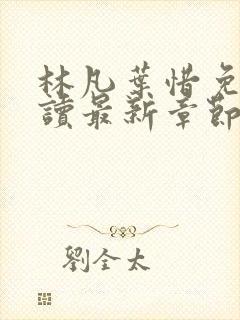 林凡葉惜免
讀最新章節
劉全太